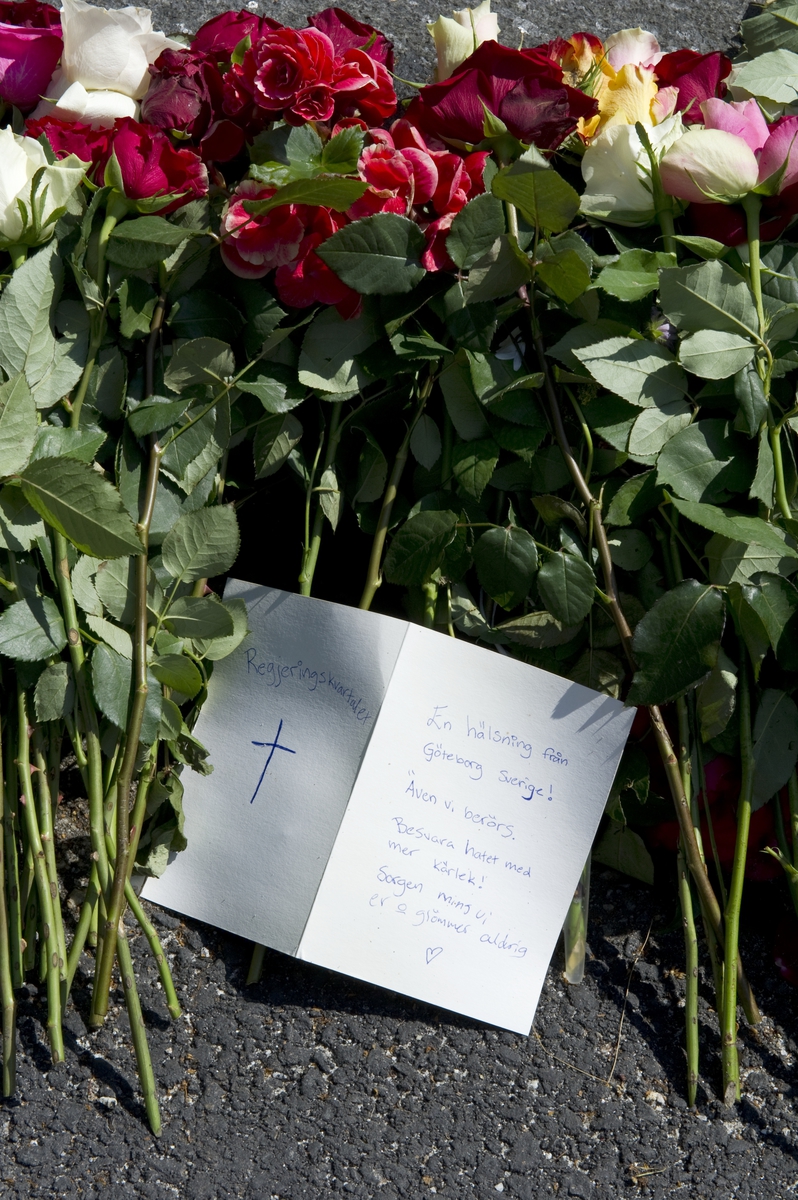 Regjeringskvartalet
En hälsning från
Göteborg Sverige!
Även vi berörs.
Besvara hatet med
mer kärlek!
Sorgen vi
er o glömmer aldrig
♡